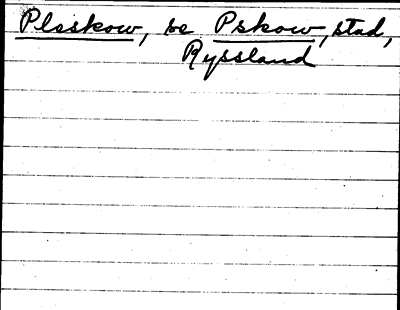 Plsskow, se Pskow, stad,
Ryssland